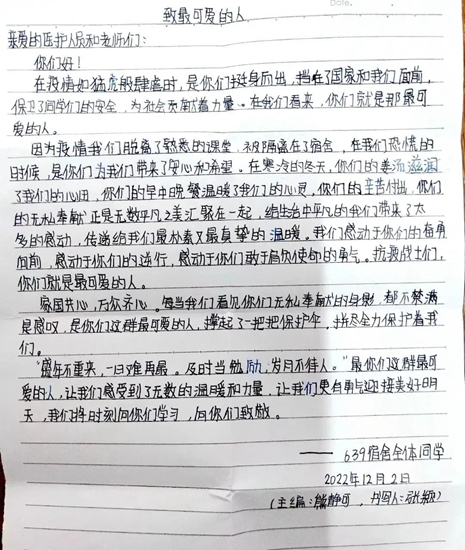 Date.
致最可爱的人
亲爱的医护人员和老师们：
你们好！
在疫情如猛虎般肆虐时，是你们挺身而出，挡在了国家和我们面前，
保卫了同学们的安全，为社会贡献着力量。在我们看来，你们就是那最可
爱的人。
因为疫情我们脱离了熟悉的课堂，被隔离在宿舍，在我们恐慌的
时候，是你们为我们带来了安心和希望。在寒冷的冬天，你们的姜汤滋润
了我们的心田，你们的早中晚餐温暖了我们的心灵，你们的辛苦付出，你们
的无私奉献正是无数平凡之美汇聚在一起，给生活中平凡的我们带来了太
多的感动，传递给我们最朴素又最真挚的温暖。我们感动于你们的奋勇
向前，感动于你们的逆行，感动于你们敢于肩负使命的勇气。抗疫战士们，
你们就是最可爱的人。
家国共心，万众齐心。每当我们看见你们无私奉献的身影，都不禁满
是感叹，是你们这群最可爱的人，撑起了一把把保护伞，拼尽全力保护着我
们。
“盛年不重来，一日难再晨。及时当勉励，岁月不待人。”是你们这群最可
爱的人，让我们感受到了无数的温暖和力量，让我们更有勇气迎接美好明
天，我们将时刻向你们学习，向你们致敬。
——639宿舍全体同学
2022年12月2日
（主编：静可，书写人：张